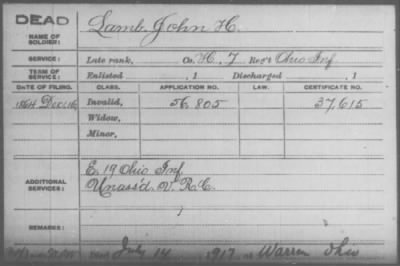 DEAD
NAME OF SOLDIER: Lamb John H.
SERVICE: Late rank, Co. H, 7 Reg't Ohio Inf.
TERM OF SERVICE: Enlisted , 1 Discharged , 1
DATE OF FILING. CLASS. APPLICATION NO. LAW. CERTIFICATE NO.
1864 Dec 16 Invalid, 56,805 37,615
Widow,
Minor,
ADDITIONAL SERVICES: E. 19 Ohio Inf
Unass'd. V. R. C.
REMARKS:
July 14, 1917, at Warren Ohio